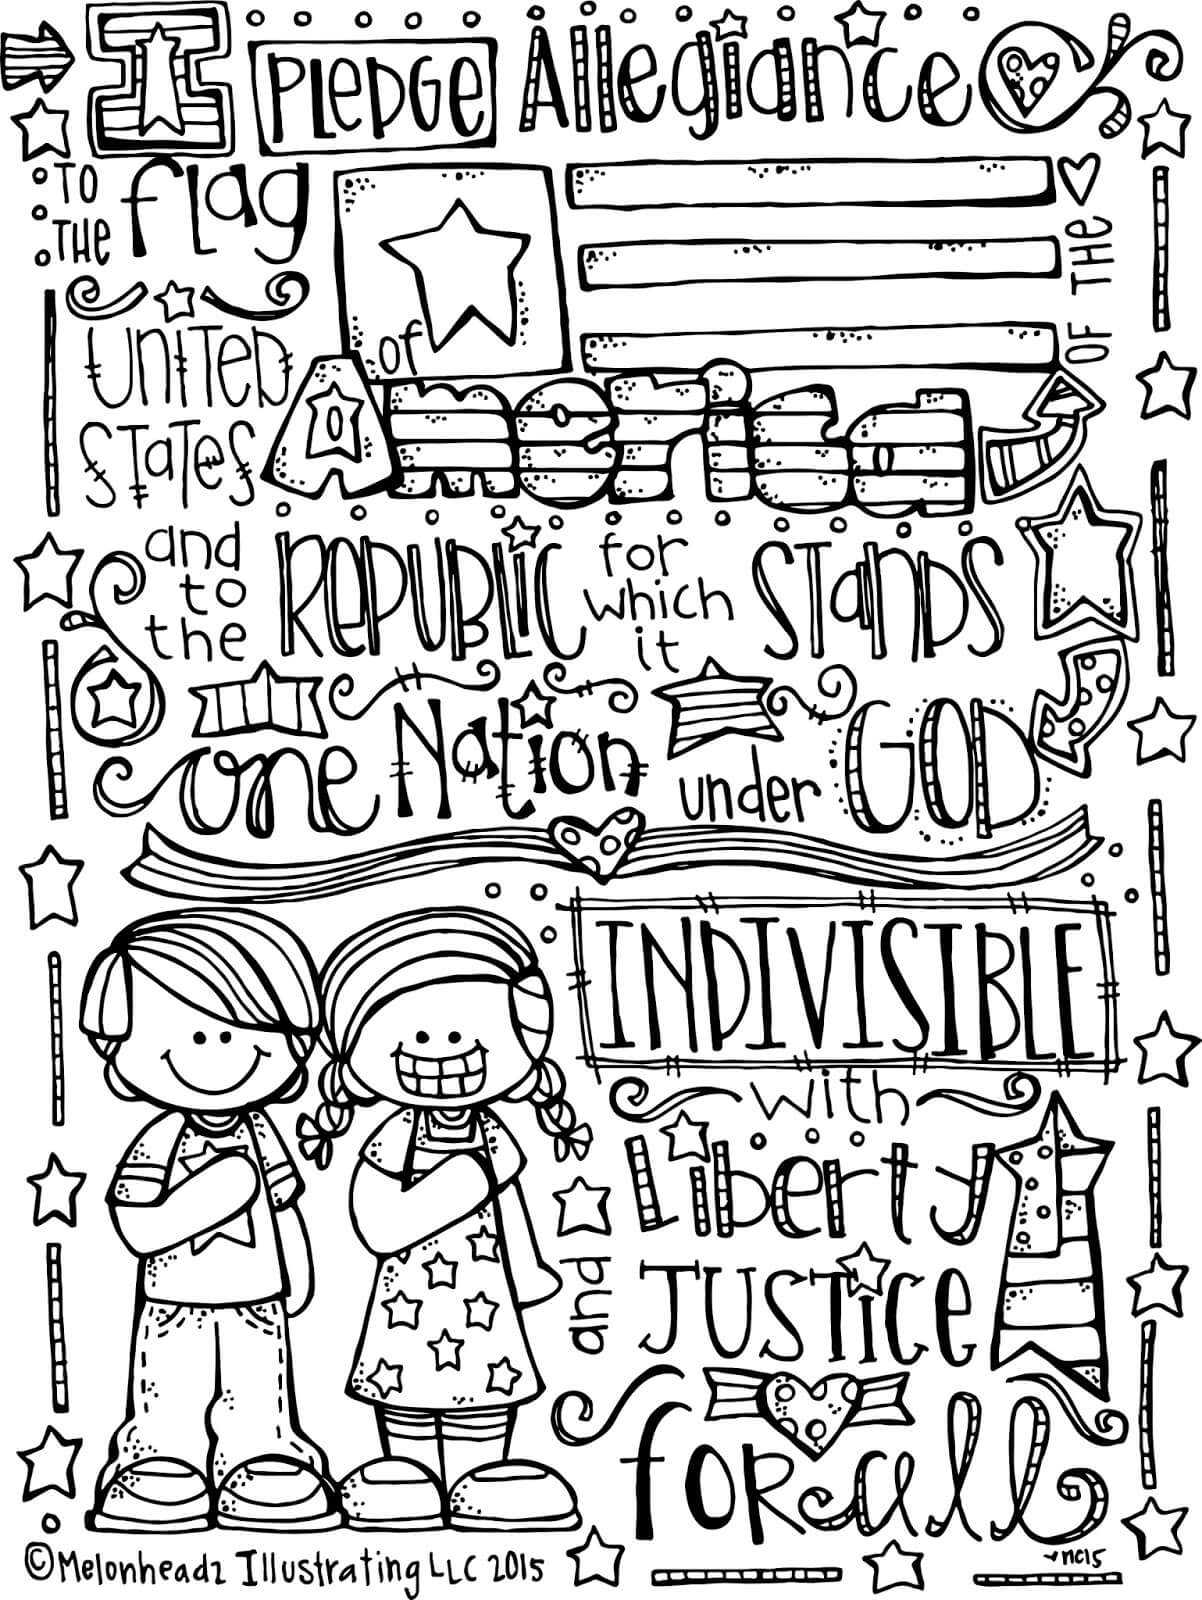 I PLEDGE Allegiance
TO THE flag OF THE
UNITED STATES of America
and to the REPUBLIC for which it STANDS
one Nation under GOD
INDIVISIBLE
with
Liberty
and JUSTICE
for all
©Melonheadz Illustrating LLC 2015
nc15